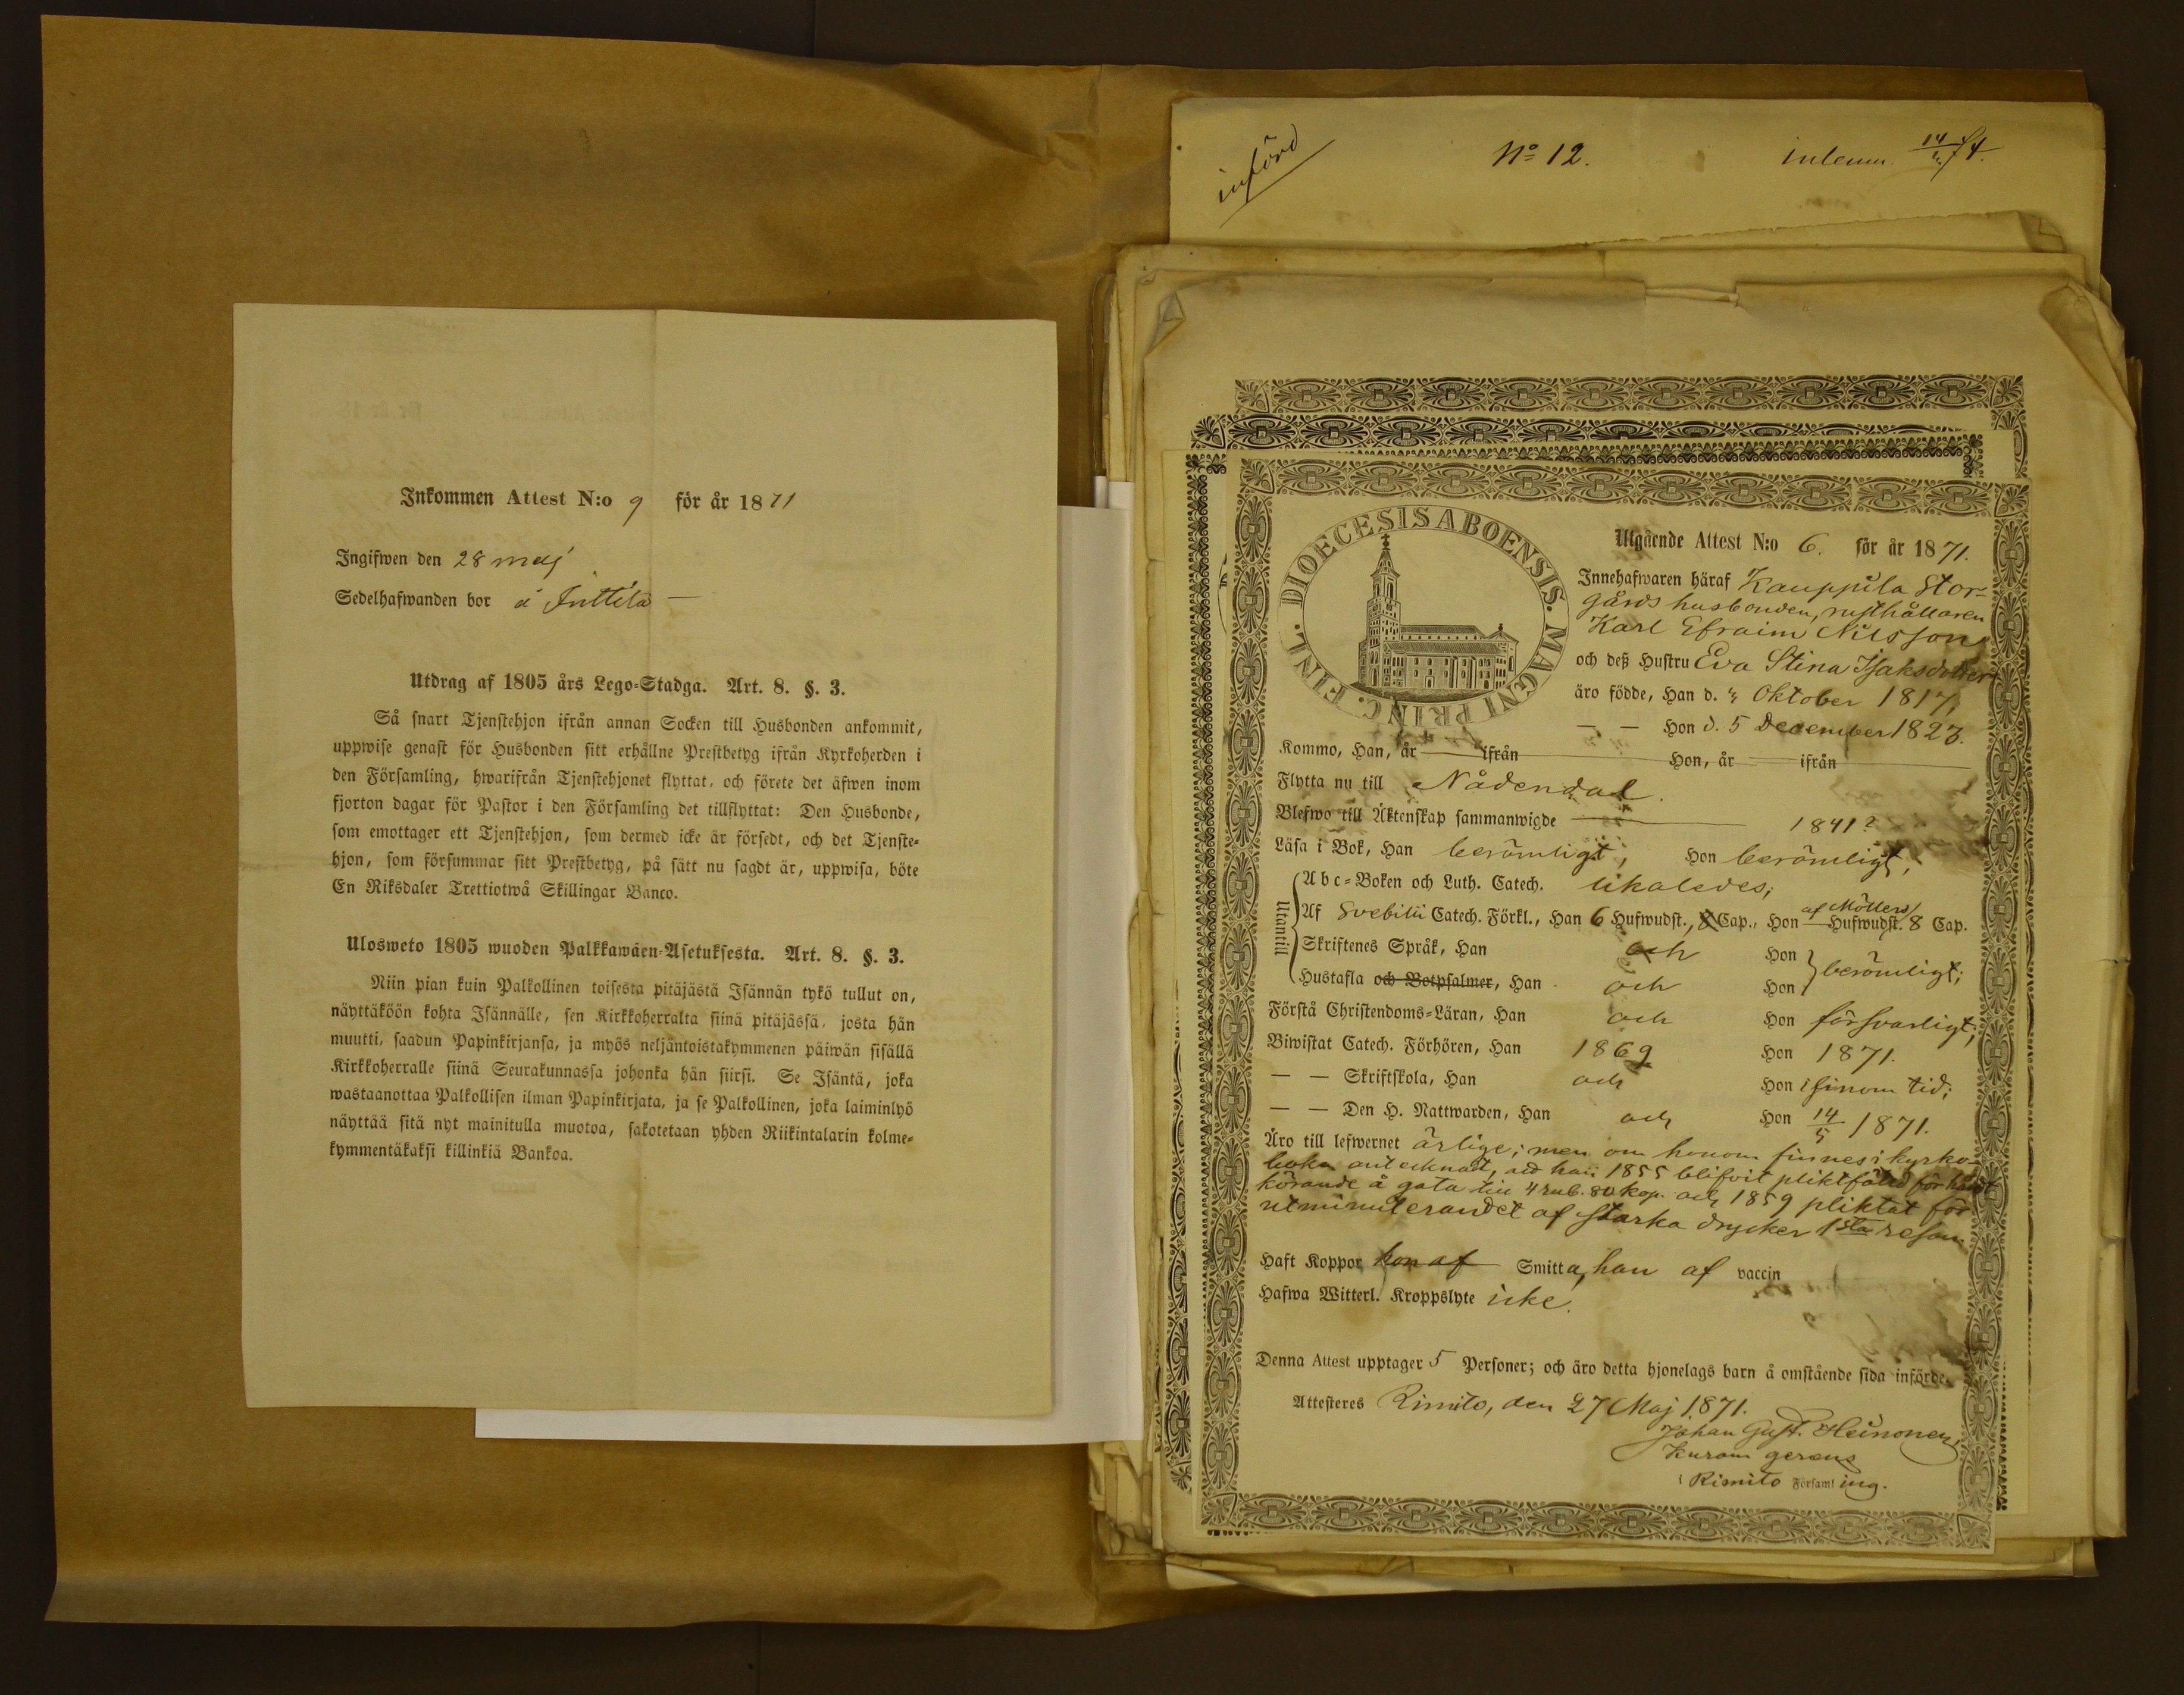 Inkommen Attest N:o 9 för år 1871
Ingifwen den 28 maj
Sedelhafwanden bor å Inttilä
Utdrag af 1805 års Lego-Stadga. Art. 8. §. 3.
Så snart Tjenstehjon ifrån annan Socken till Husbonden ankommit,
uppwise genast för Husbonden sitt erhållne Prestbetyg ifrån Kyrkoherden i
den Församling, hwarifrån Tjenstehjonet flyttat, och förete det äfwen inom
fjorton dagar för Pastor i den Församling det tillflyttat: Den Husbonde,
som emottager ett Tjenstehjon, som dermed icke är försedt, och det Tjenste-
hjon, som försummar sitt Prestbetyg, på sätt nu sagdt är, uppwisa, böte
En Riksdaler Trettiotwå Skillingar Banco.
Ulosweto 1805 wuoden Palkkawäen-Asetuksesta. Art. 8. §. 3.
Niin pian kuin Palkollinen toisesta pitäjästä Isännän tykö tullut on,
näyttäköön kohta Isännälle, sen Kirkkoherralta siinä pitäjässä, josta hän
muutti, saadun Papinkirjansa, ja myös neljäntoistakymmenen päiwän sisällä
Kirkkoherralle siinä Seurakunnassa johonka hän siirsi. Se Isäntä, joka
wastaanottaa Palkollisen ilman Papinkirjata, ja se Palkollinen, joka laiminlyö
näyttää sitä nyt mainitulla muotoa, sakotetaan yhden Riikintalarin kolme-
kymmentäkaksi killinkiä Bankoa.
införd
No 12.
inlemn. 14/ 74.
DIOECESIS ABOENSIS. MAGNI PRINC. FINL.
Utgående Attest N:o 6. för år 1871.
Innehafwaren häraf Kauppila Stor-
gårds husbonden, rusthållaren
Karl Efraim Nilsson
och deß Hustru Eva Stina Isaksdotter
äro födde, Han d. Oktober 1817,
— — Hon d. 5 December 1823.
Kommo, Han, år — ifrån — Hon, år — ifrån —
Flytta nu till Nådendal.
Blefwo till Äktenskap sammanwigde — 1841?
Läsa i Bok, Han berömligt, Hon berömligt,
Utantill
Abc-Boken och Luth. Catech. likaledes;
Af Svebilii Catech. Förkl., Han 6 Hufwudst., 8 Cap., Hon af Möllers Hufwudst. 8 Cap.
Skriftenes Språk, Han och Hon
Hustafla och Botpsalmer, Han och Hon berömligt;
Förstå Christendoms-Läran, Han och Hon försvarligt;
Biwistat Catech. Förhören, Han 1869 Hon 1871.
— — Skriftskola, Han och Hon i sinom tid;
— — Den H. Nattwarden, Han och Hon 14/5 1871.
Äro till lefwernet ärlige; men om honom finnes i kyrko-
boken antecknadt, att han 1855 blifvit pliktfälld för
körande å gata till 4 rub. 80 kop. och 1859 pliktat för
utminuterandet af starka drycker 1sta resan.
Haft Koppor hon af Smitta, han af vaccin
Hafwa Witterl. Kroppslyte icke.
Denna Attest upptager 5 Personer; och äro detta hjonelags barn å omstående sida införde.
Attesteres Rimito, den 27 Maj 1871.
Johan Gust. Heinonen,
Kuram gerens
i Rimito Församling.